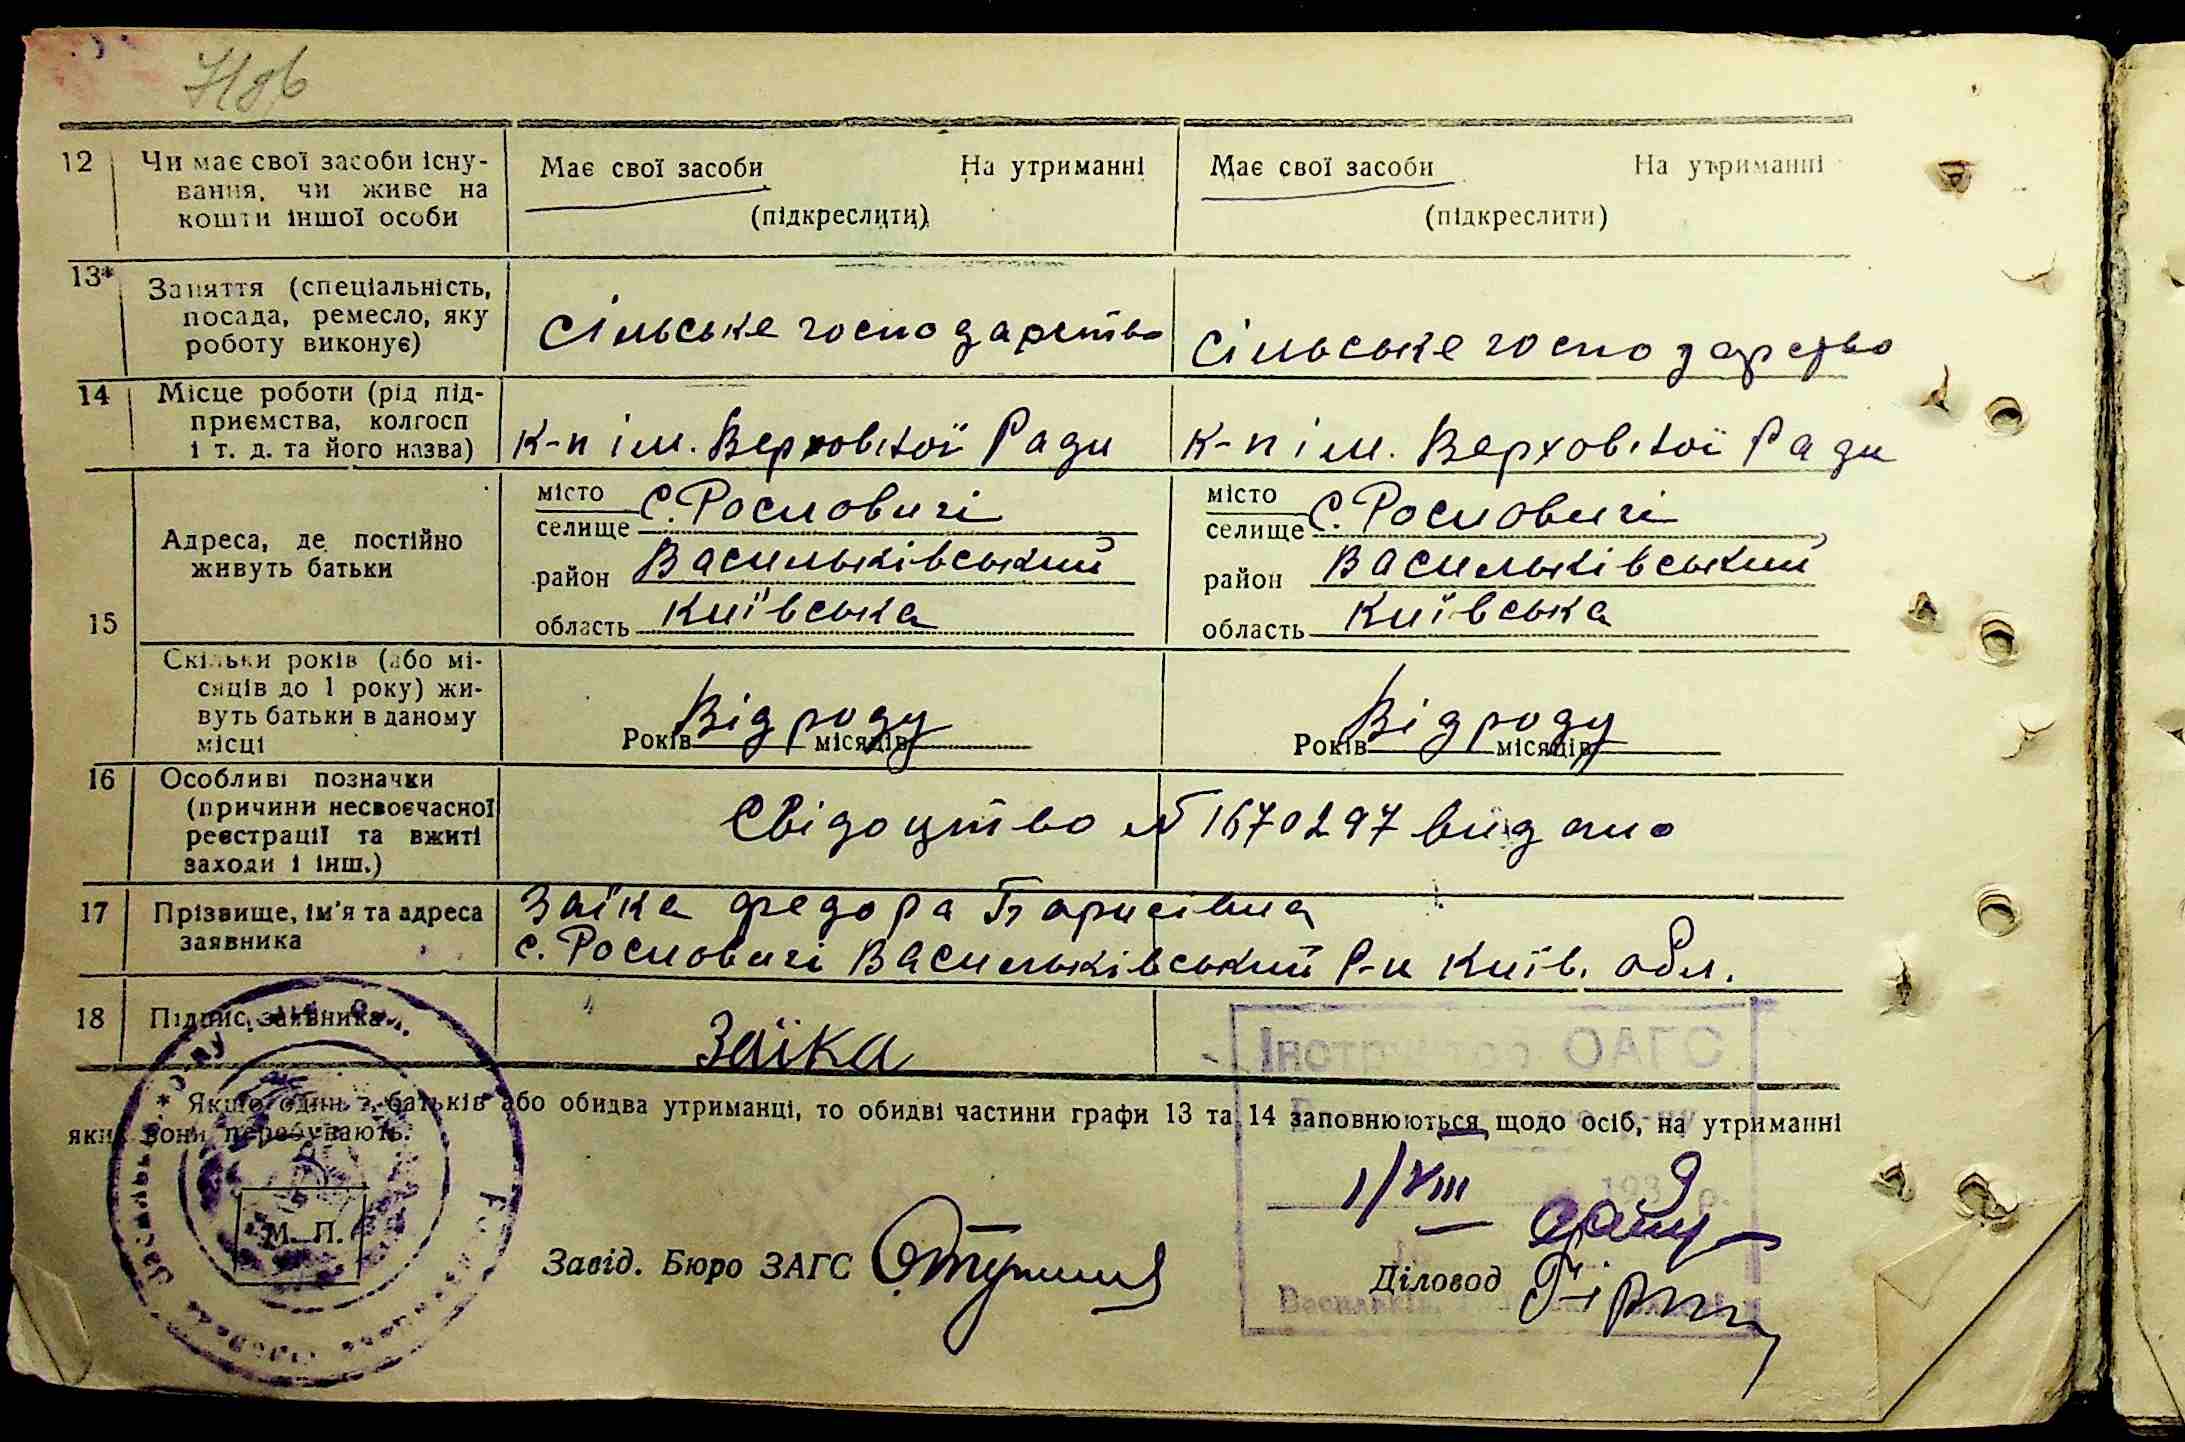 12 Чи має свої засоби існу-
вання, чи живе на
кошти іншої особи
Має свої засоби На утриманні
(підкреслити)
Має свої засоби На утриманні
(підкреслити)
13* Заняття (спеціальність,
посада, ремесло, яку
роботу виконує)
Сільське господарство
Сільське господарство
14 Місце роботи (рід під-
приємства, колгосп
і т. д. та його назва)
К-п ім. Верховної Ради
К-п ім. Верховної Ради
15 Адреса, де постійно
живуть батьки
місто
селище с. Росновичі
район Васильківський
область Київська
місто
селище с. Росновичі
район Васильківський
область Київська
Скільки років (або мі-
сяців до 1 року) жи-
вуть батьки в даному
місці
Від роду
Років місяців
Від роду
Років місяців
16 Особливі позначки
(причини несвоєчасної
реєстрації та вжиті
заходи і інш.)
Свідоцтво № 1670297 видано
17 Прізвище, ім'я та адреса
заявника
Заїка Федора Борисівна
с. Росновичі Васильківський р-н Київ. обл.
18 Підпис заявника
Заїка
Інструктор ОАГС
* Якщо один з батьків або обидва утриманці, то обидві частини графи 13 та 14 заповнюються щодо осіб, на утриманні
яких вони перебувають.
1/VIII
М. П.
Завід. Бюро ЗАГС
Діловод